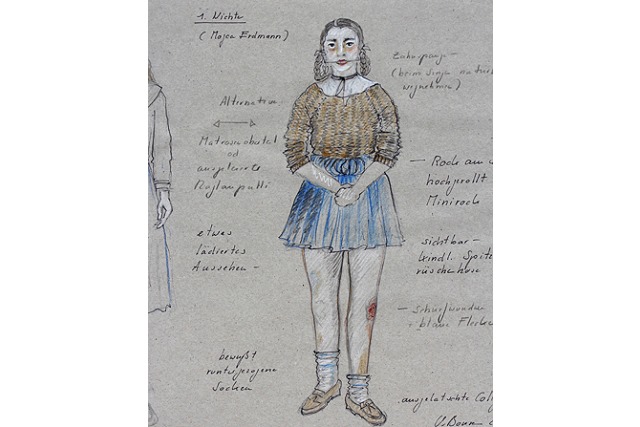 1. Nichte
(Mojca Erdmann)
Zahnspange -
(beim Singen
Alternative
Matrosenobertel
od
ausgeleierte
Raglanpulli
Rock am
hochgerollt
Minirock
etwas
lädiertes
Aussehen -
sichtbar -
kindl. Spitzen
rüschenhose
- Schürfwunden
+ blaue Flecke
bewußt
runtergezogene
Socken
ausgelatschte